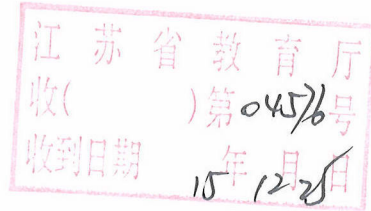 江苏省教育厅
收( )第04576号
收到日期 15年12月25日